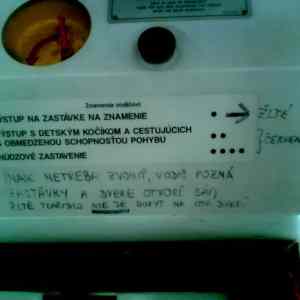 Znamenie vodičovi:
ÝSTUP NA ZASTÁVKE NA ZNAMENIE • → ŽLTÉ
ÝSTUP S DETSKÝM KOČÍKOM A CESTUJÚCICH •• 
S OBMEDZENOU SCHOPNOSŤOU POHYBU
NÚDZOVÉ ZASTAVENIE ••••• 
INAK NETREBA ZVONIŤ, VODIČ POZNÁ
ZASTÁVKY A DVERE OTVORÍ SÁM,
ŽLTÉ TLAČIDLO NIE JE